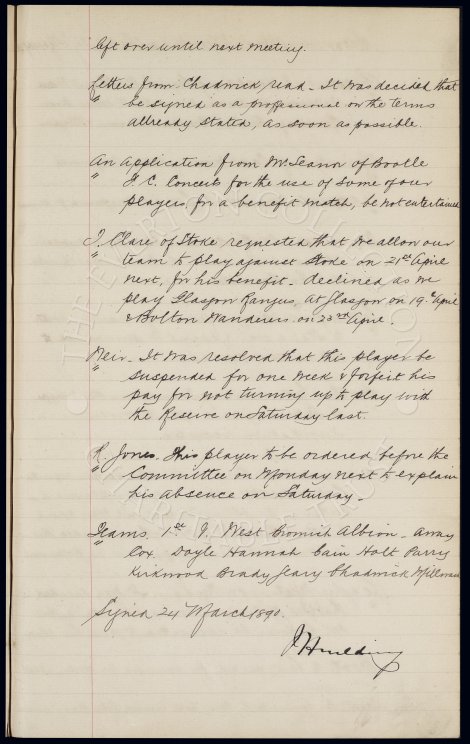 left over until next meeting.
Letters from Chadwick read - It was decided that
" be signed as a proffessional on the terms
allready stated, as soon as possible.
An application from Mr Seanor of Bootle
" F. C. Concerts for the use of some of our
players, for a benefit match, be not entertained
T. Clare of Stoke requested that we allow our
" team to play against Stoke on 21st April
next, for his benefit - declined as we
play Glasgow Rangers, at Glasgow on 19th April
& Bolton Wanderers on 23rd April.
Weir - It was resolved that this player be
" suspended for one week & forfeit his
pay for not turning up to play with
the Reserve on Saturday last.
R. Jones. This player to be ordered before the
" Committee on Monday next to explain
his absence on Saturday -
Teams. 1st V. West Bromwich Albion - Away
" Cox Doyle Hannah Cain Holt Parry
Kirkwood Brady Geary Chadwick Millward
Signed 24 March 1890.
J Houlding